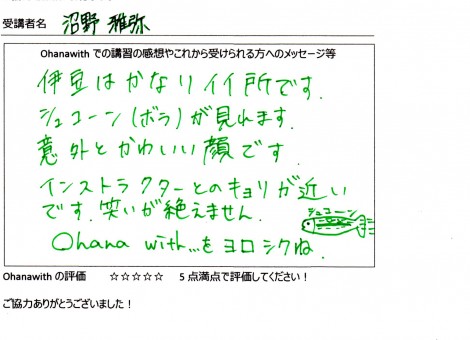 受講者名 沼野 雅弥
Ohanawith での講習の感想やこれから受けられる方へのメッセージ等
伊豆はかなりイイ所です。
シュコーン(ボラ)が見れます。
意外とかわいい顔です。
インストラクターとのキョリが近い
です。笑いが絶えません。
シュコーン
Ohana with…をヨロシクね。
Ohanawith の評価 ☆☆☆☆☆ 5点満点で評価してください！
ご協力ありがとうございました！